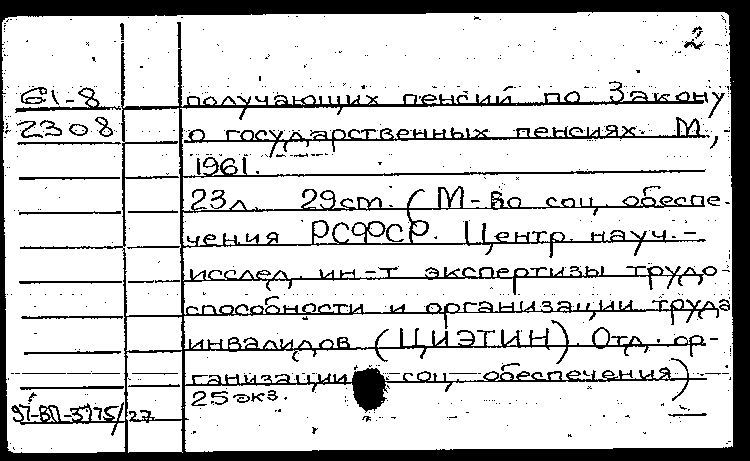 2
61-8
2308
получающих пенсий по Закону
о государственных пенсиях. М.,
1961.
23л. 29см. (М-во соц. обеспе-
чения РСФСР. Центр. науч.-
исслед. ин-т экспертизы трудо
способности и организации труда
инвалидов (ЦИЭТИН). Отд. ор-
ганизации соц. обеспечения).
25экз.